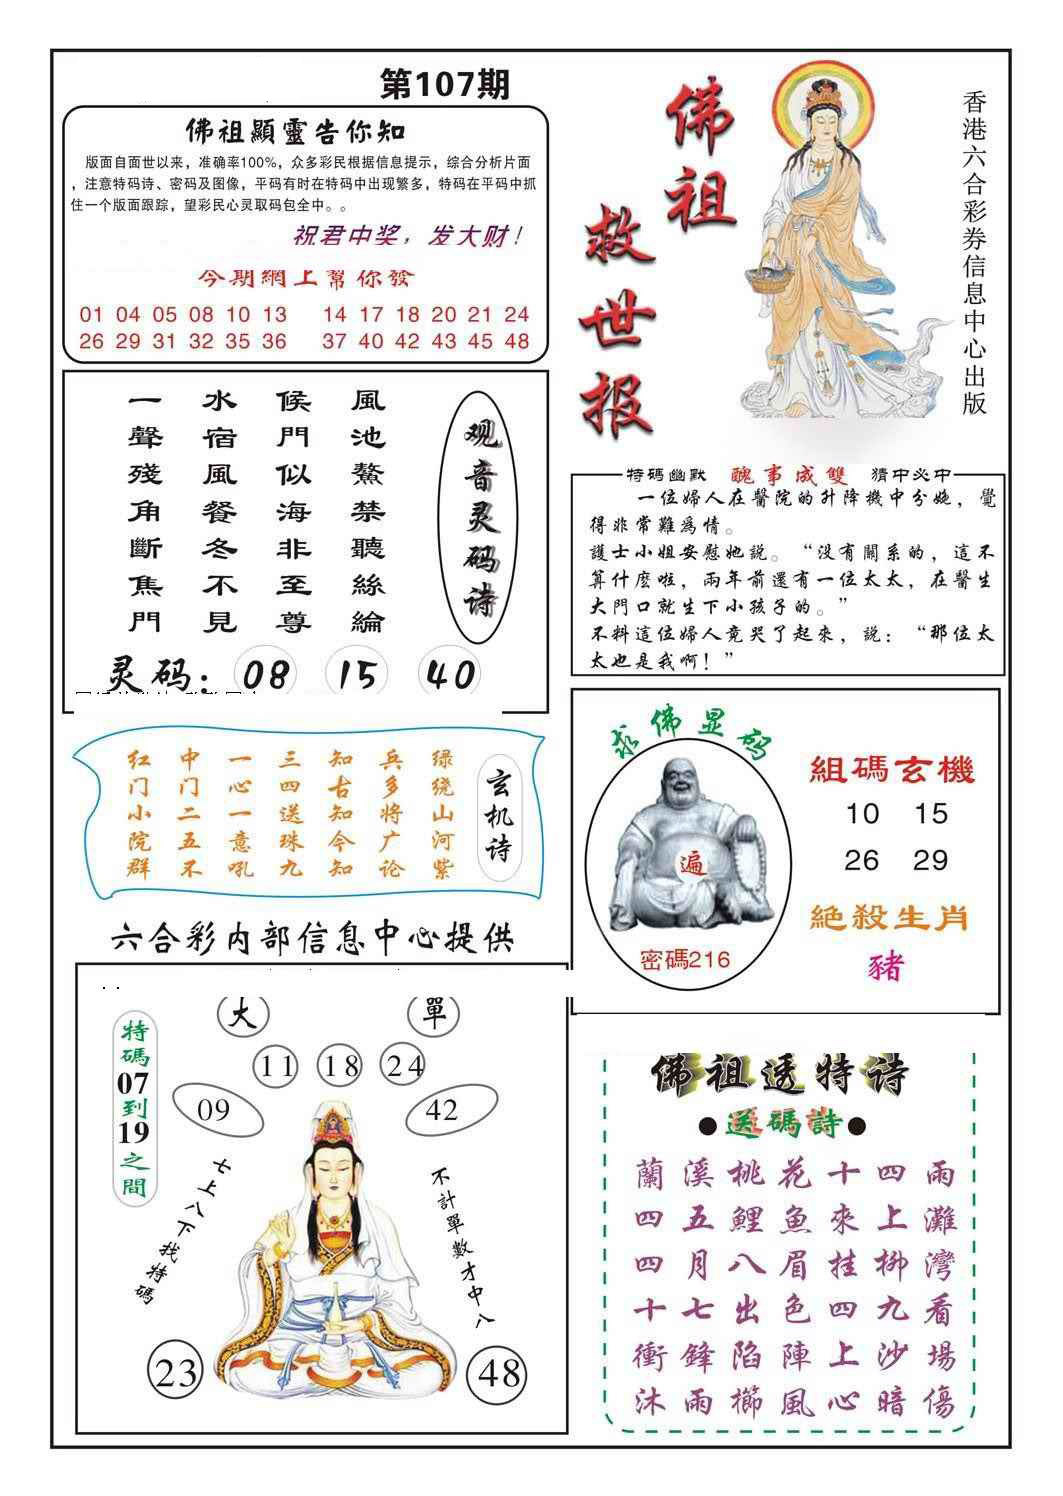 第107期
佛祖顯靈告你知
版面自面世以来，准确率100%，众多彩民根据信息提示，综合分析片面
，注意特码诗、密码及图像，平码有时在特码中出现繁多，特码在平码中抓
住一个版面跟踪，望彩民心灵取码包全中。。
祝君中奖，发大财！
今期網上幫你發
01 04 05 08 10 13 14 17 18 20 21 24
26 29 31 32 35 36 37 40 42 43 45 48
佛祖
救世报
香港六合彩券信息中心出版
观音灵码诗
風池鰲禁聽絲綸
候門似海非至尊
水宿風餐冬不見
一聲殘角斷焦門
灵码：08 15 40
特碼幽默 醜事成雙 猜中必中
一位婦人在醫院的升降機中分娩，覺
得非常難爲情。
護士小姐安慰她説。“没有關系的，這不
算什麽啦，兩年前還有一位太太，在醫生
大門口就生下小孩子的。”
不料這位婦人竟哭了起來，説：“那位太
太也是我啊！”
玄机诗
绿绕山河紫
兵多将广论
知古知今知
三四送珠九
一心一意吼
中门二五不
红门小院群
求佛显码
遍
密碼216
組碼玄機
10 15
26 29
絶殺生肖
豬
六合彩内部信息中心提供
特碼07到19之間
大 單
11 18 24
09 42
七上八下找特碼
不計單數才中八
23 48
佛祖透特诗
●送碼詩●
蘭溪桃花十四雨
四五鯉魚來上灘
四月八眉挂柳灣
十七出色四九看
衝鋒陷陣上沙場
沐雨櫛風心暗傷